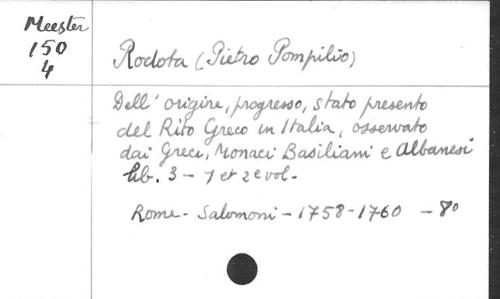 Meester
150
4
Rodota (Pietro Pompilio)
Dell' origine, progresso, stato presento
del Rito Greco in Italia, osservato
dai Greci, Monaci Basiliani e Albanesi
lib. 3 - 1 et 2e vol-
Rome - Salomoni - 1758-1760 - 8°